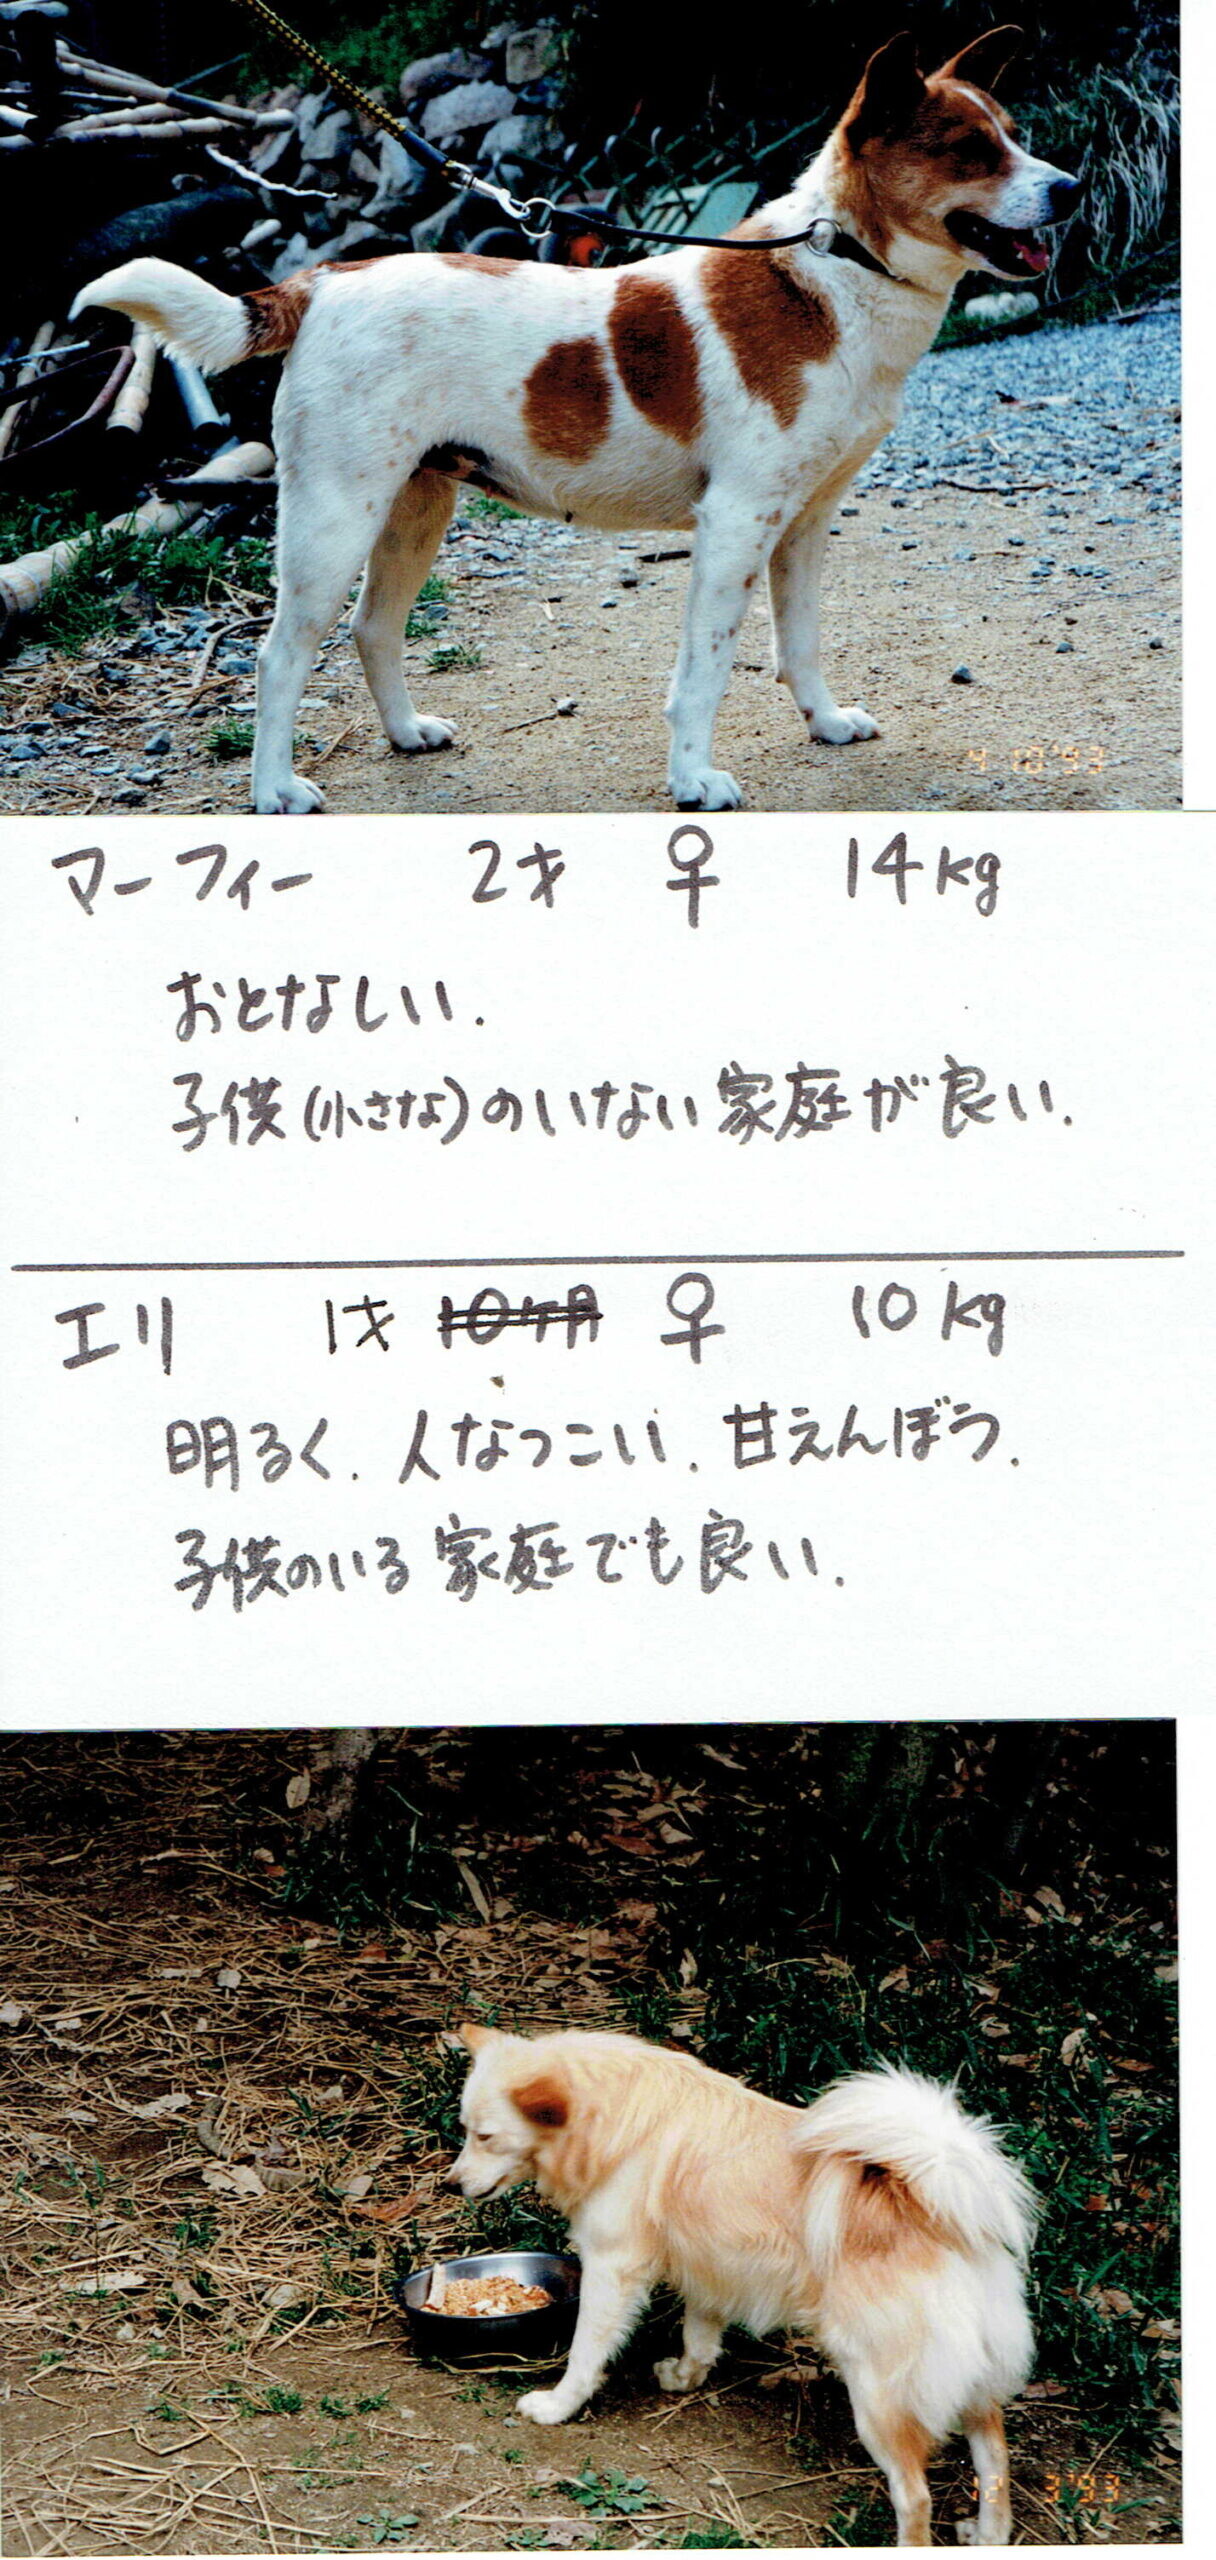 4 10'93
マーフィー 2才 ♀ 14kg
おとなしい.
子供(小さな)のいない家庭が良い.
エリ 1才 10ヶ月 ♀ 10kg
明るく. 人なつこい. 甘えんぼう.
子供のいる家庭でも良い.
12 3'93